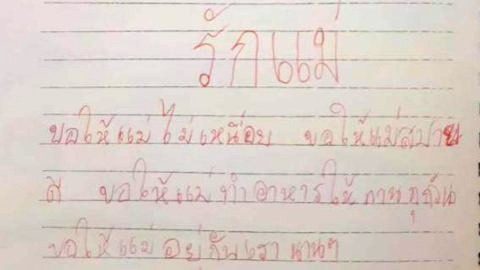 รักแม่
ขอให้แม่ไม่เหนื่อย ขอให้แม่สบาย
ดี ขอให้แม่ทำอาหารให้ทานทุกวัน
ขอให้แม่อยู่กับเรานานๆ